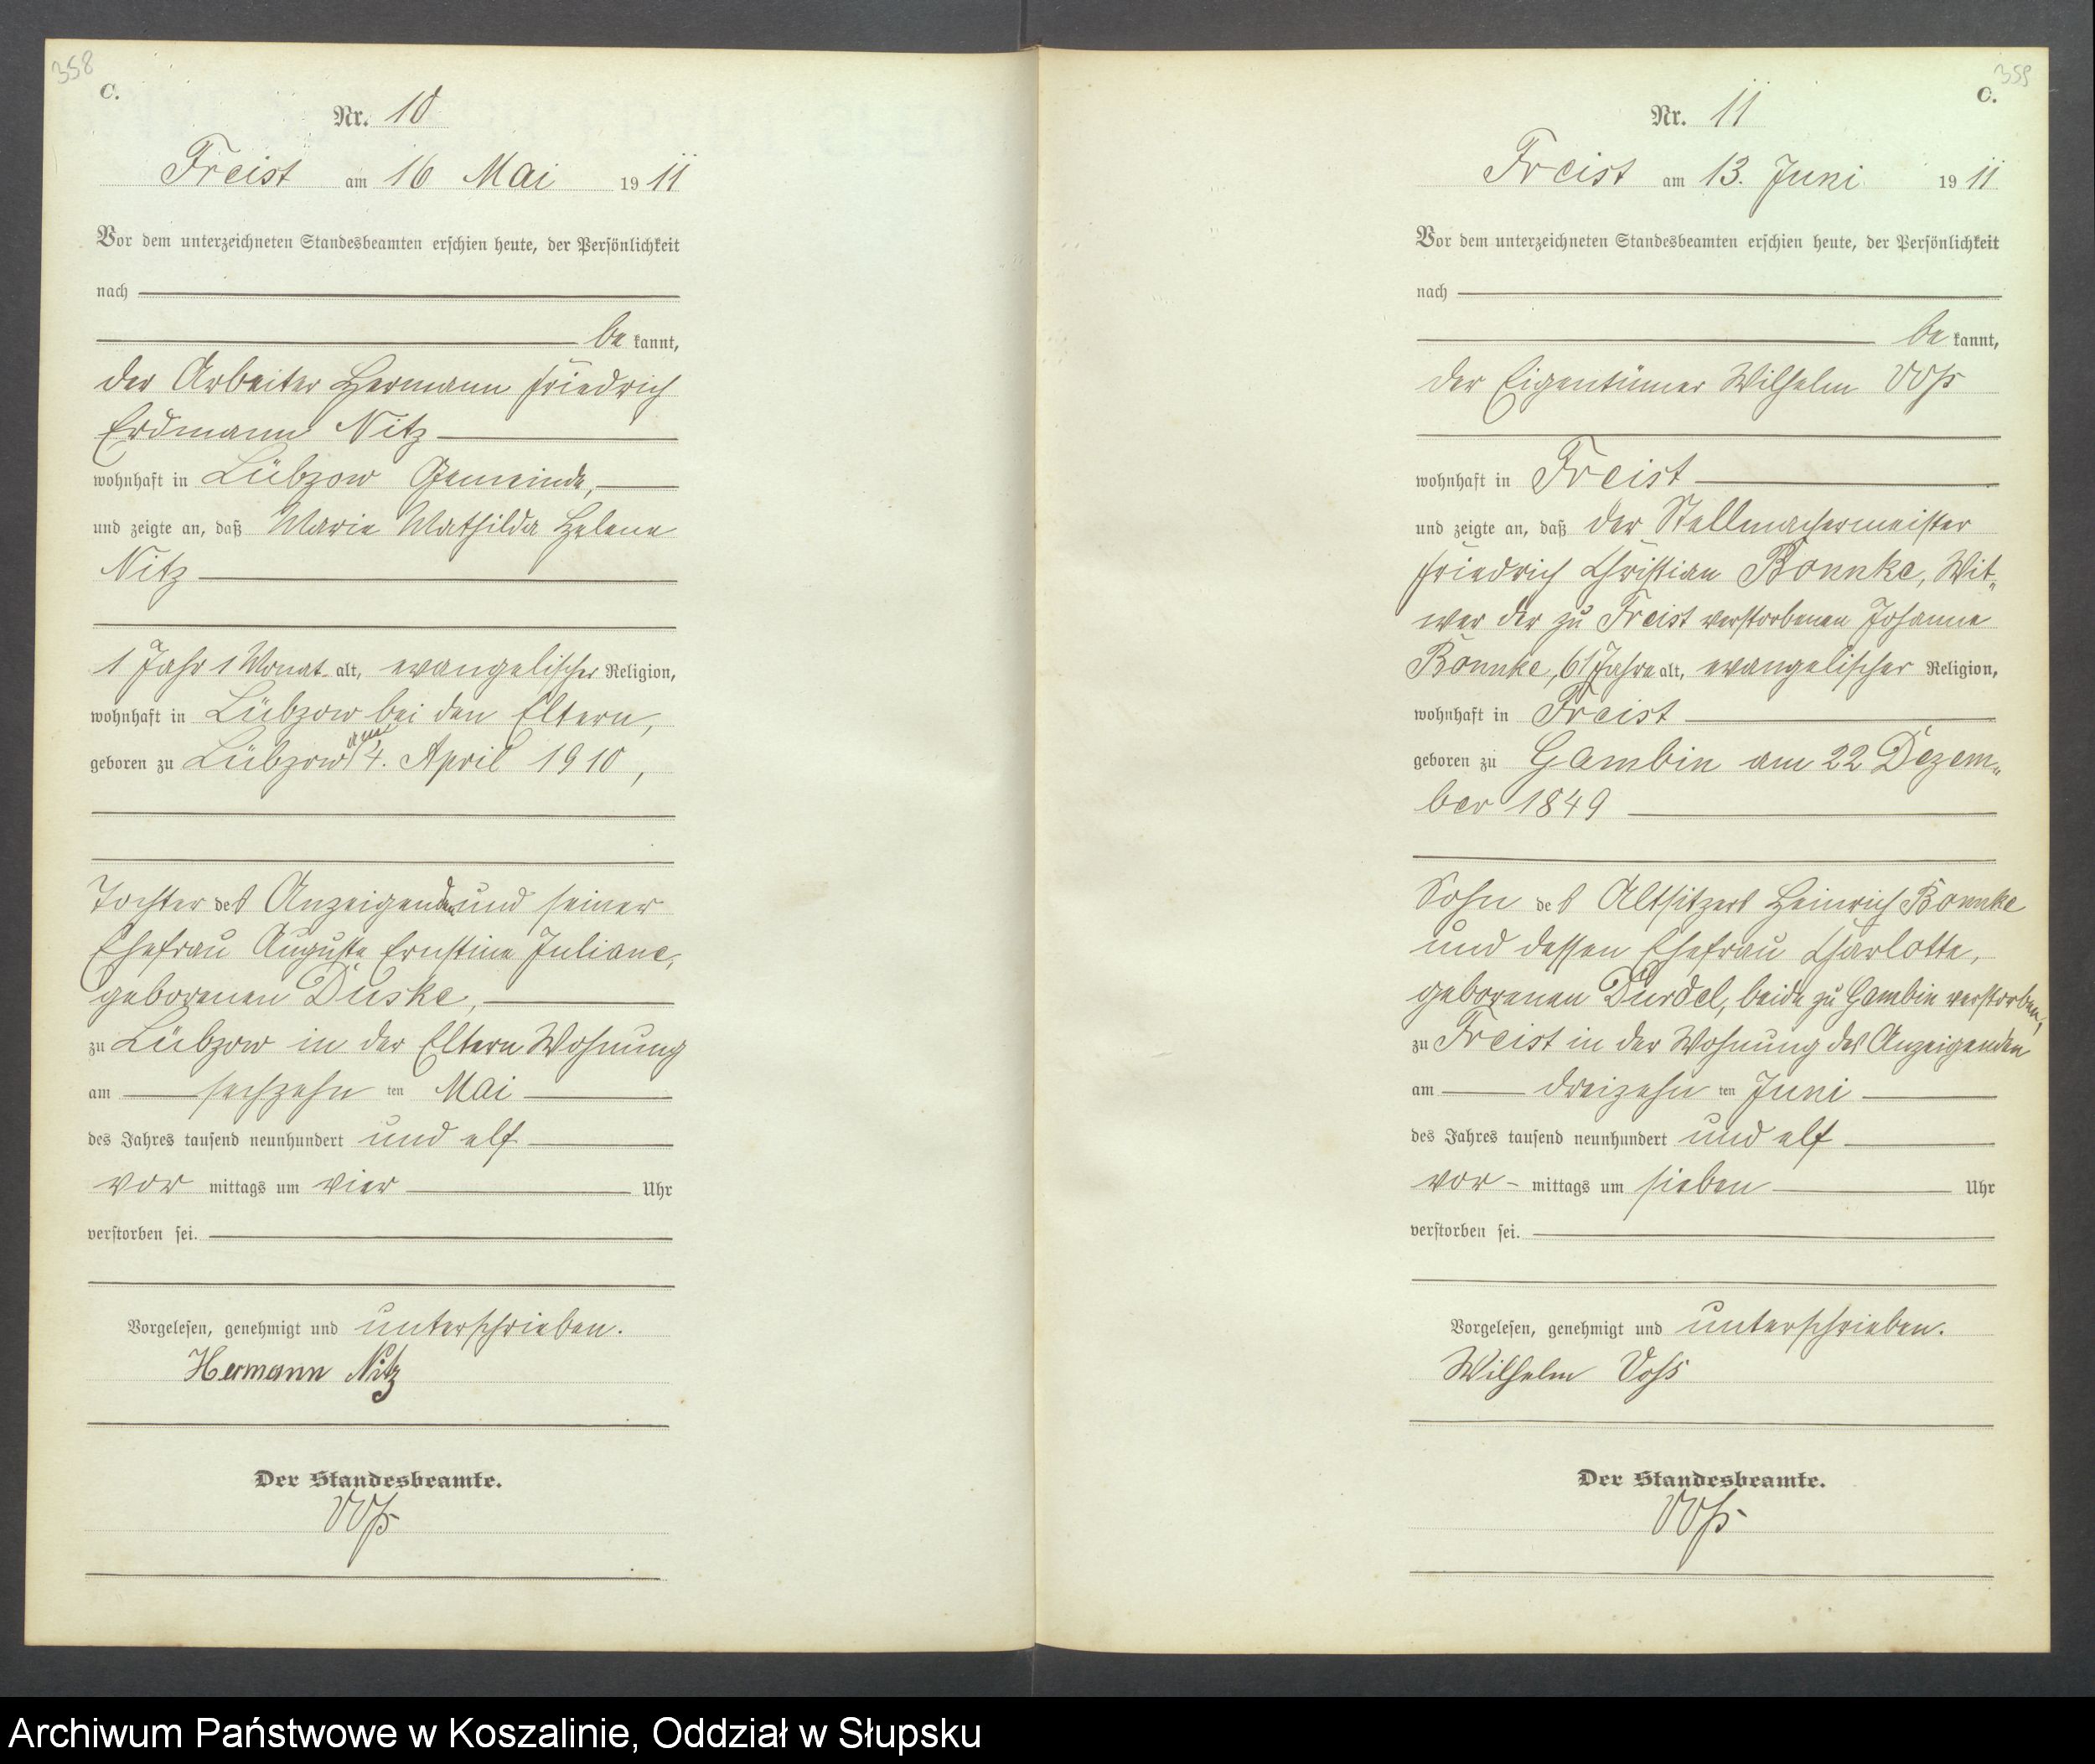 358
C.
Nr. 10
Freist am 16 Mai 1911
Vor dem unterzeichneten Standesbeamten erschien heute, der Persönlichkeit
nach
be kannt,
der Arbeiter Hermann Friedrich
Erdmann Nitz
wohnhaft in Lübzow Gemeinde,
und zeigte an, daß Marie Mathilde Helene
Nitz
1 Jahr 1 Monat alt, evangelischer Religion,
wohnhaft in Lübzow bei den Eltern,
geboren zu Lübzow am 4. April 1910,
Tochter des Anzeigenden und seiner
Ehefrau Auguste Ernstine Juliane,
geborenen Duske,
zu Lübzow in der Eltern Wohnung
am sechzehn ten Mai
des Jahres tausend neunhundert und elf
vor mittags um vier Uhr
verstorben sei.
Vorgelesen, genehmigt und unterschrieben.
Hermann Nitz
Der Standesbeamte.
Voß
359
C.
Nr. 11
Freist am 13. Juni 1911
Vor dem unterzeichneten Standesbeamten erschien heute, der Persönlichkeit
nach
be kannt,
der Eigentümer Wilhelm Voß
wohnhaft in Freist
und zeigte an, daß der Stellmachermeister
Friedrich Christian Bonnke, Wit-
wer der zu Freist verstorbenen Johanne
Bonnke, 61 Jahre alt, evangelischer Religion,
wohnhaft in Freist
geboren zu Gambin am 22 Dezem-
ber 1849
Sohn des Altsitzers Heinrich Bonnke
und dessen Ehefrau Charlotte,
geborenen beide zu Gambin verstorben,
zu Freist in der Wohnung des Anzeigenden
am dreizehn ten Juni
des Jahres tausend neunhundert und elf
vor- mittags um sieben Uhr
verstorben sei.
Vorgelesen, genehmigt und unterschrieben.
Wilhelm Voß
Der Standesbeamte.
Voß
Archiwum Państwowe w Koszalinie, Oddział w Słupsku